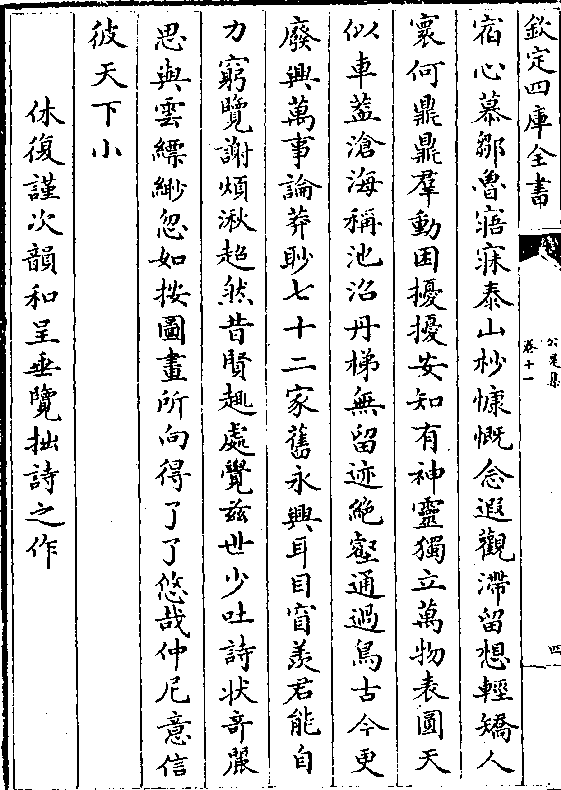 欽定四庫全書
公是集
卷十一
四
宿心慕鄒魯寤寐泰山杪慷慨念遐觀滯留想輕矯人
寰何鼎鼎羣動困擾擾安知有神靈獨立萬物表圓天
似車蓋滄海稱池沼丹梯無留迹絶壑通過鳥古今更
廢興萬事論莽眇七十二家舊永興耳目窅羨君能自
力窮覽謝煩湫超然昔賢趣處覺兹世少吐詩狀竒嚴
思與雲縹緲忽如按圖畫所向得了了悠哉仲尼意信
彼天下小
休復謹次韻和呈垂覽拙詩之作